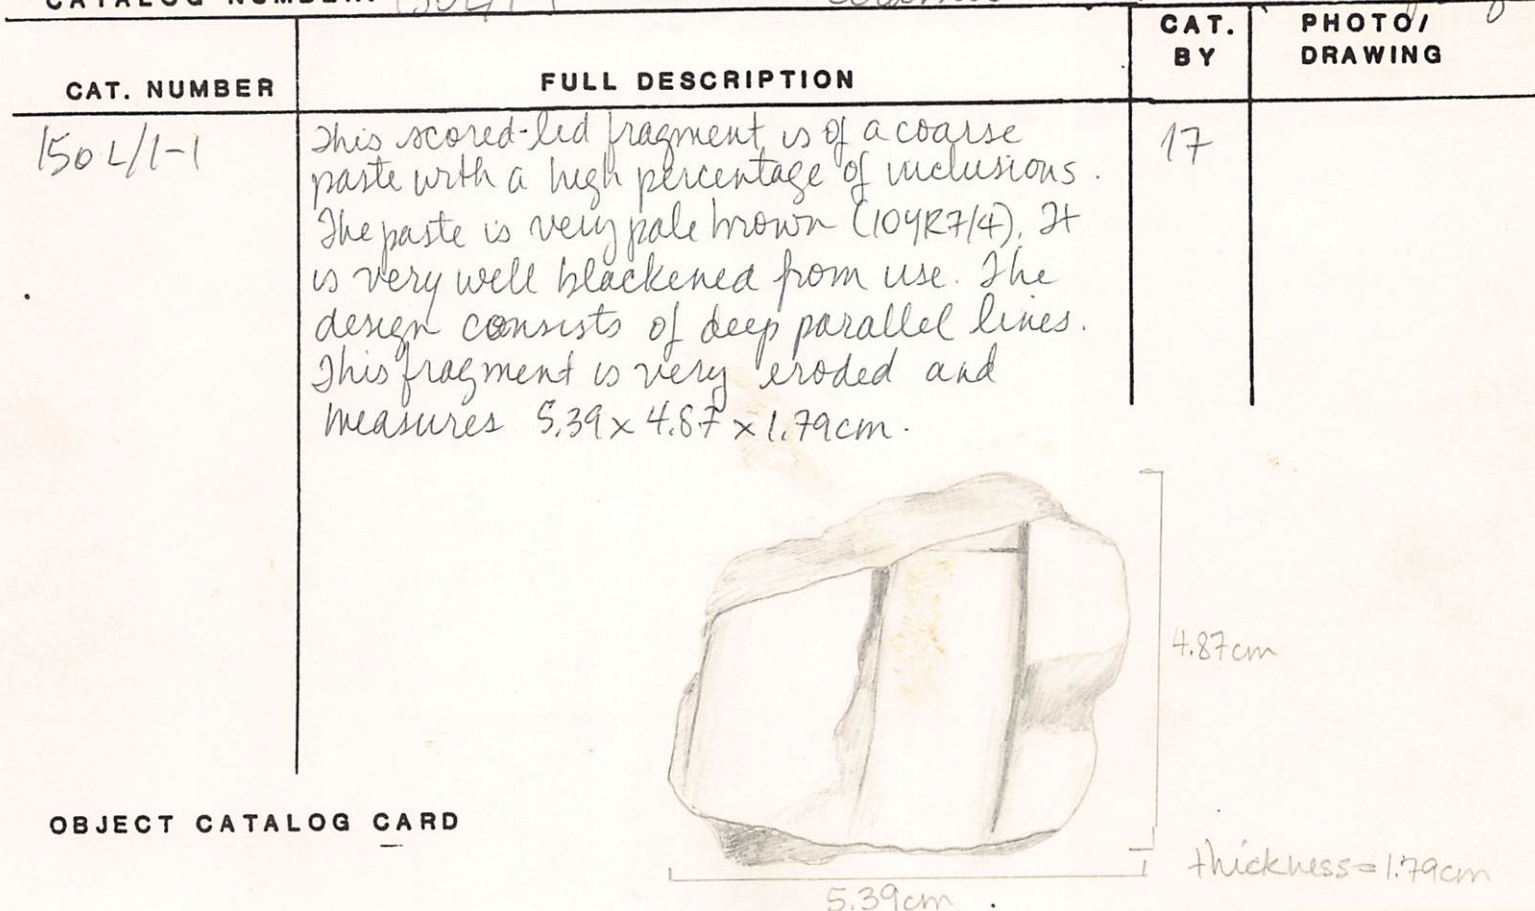 CATALOG NUMBER:
CAT. NUMBER
FULL DESCRIPTION
CAT.
BY
PHOTO/
DRAWING
150L/1-1
This scored-lid fragment is of a coarse
paste with a high percentage of inclusions.
The paste is very pale brown (10YR7/4). It
is very well blackened from use. The
design consists of deep parallel lines.
This fragment is very eroded and
measures 5.39 x 4.87 x 1.79cm.
17
4.87cm
thickness=1.79cm
5.39cm
OBJECT CATALOG CARD